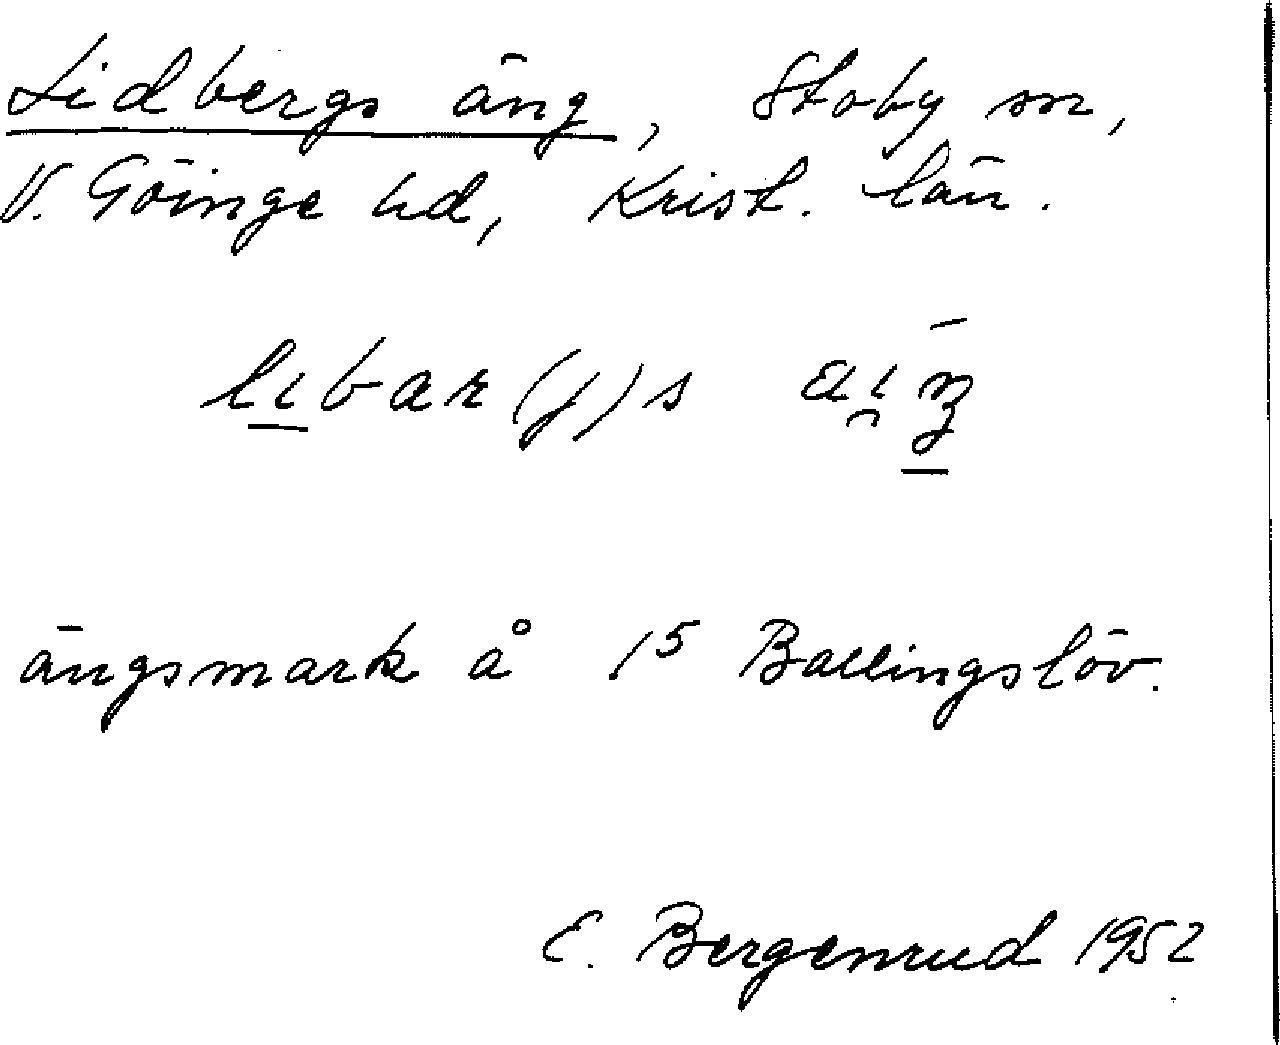 Lidbergs äng, Stoby sn,
V. Göinge hd, Krist. län.
lıbar(j)s
ängsmark å 15 Ballingslöv.
E. Bergenrud 1952